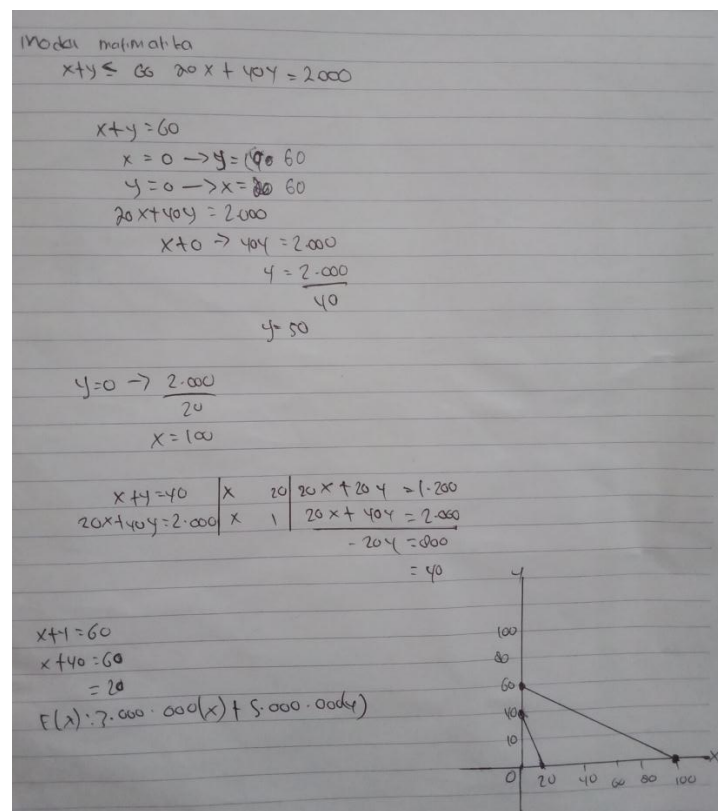 Modal matimatika
x+y ≤ 60 20x + 40y = 2000
x+y = 60
x = 0 → y = 60
y = 0 → x = 60
20x+40y = 2.000
x+0 → 40y = 2.000
y = 2.000
40
y= 50
y=0 → 2.000
20
x = 100
x+y=40 | x 20 | 20x + 20y = 1.200
20x+40y=2.000 | x 1 | 20x + 40y = 2.000
- 20y = 800
= 40
x+y=60
x+40=60
= 20
F(x):3.000.000(x) + 5.000.000(y)
y
100
80
60
40
10
0 20 40 60 80 100 x